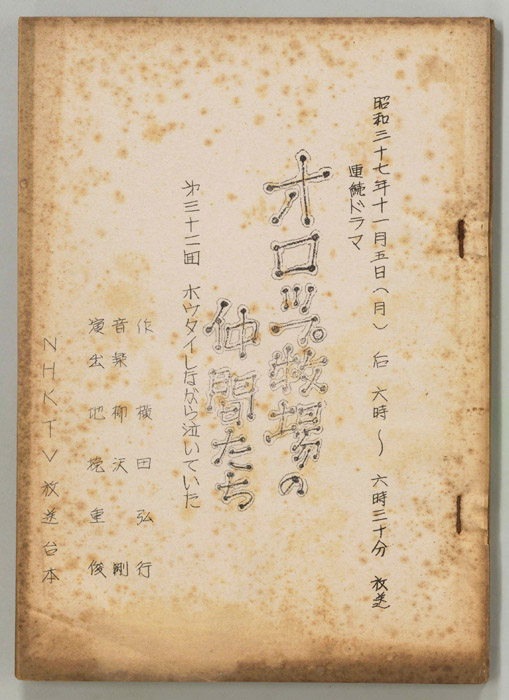 昭和三十七年十一月五日(月) 后 六時〜 六時三十分 放送
連続ドラマ
オロップ牧場の
仲間たち
第三十二回 ホウタイしながら泣いていた
作 横田弘行
音楽 柳沢剛
演出 地挽重俊
NHKTV放送台本